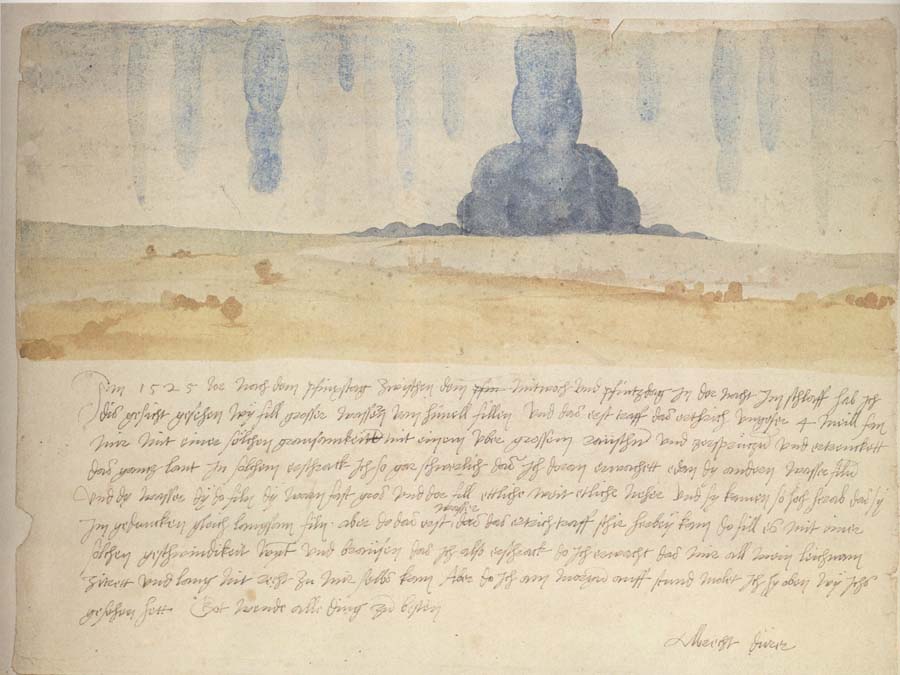 Im 1525 Jor nach dem pfinxstag zwischen dem pfin mitwoch und pfintzdag in der nacht im schlaff hab ich
dis gesicht gesehen wy fill grosser wassern vom himell fillen Und das erst traff das erthrich ungefer 4 meill fan
mir mit einer solchen grausamkeitt mit einem uber grossem raüschn und zersprützn und ertrenckett
das gannz lant In solchem erschrack ich so gar schwerlich das ich doran erwachett edan dy andern wasser filn
Und dy wasser dy do filn dy warn fast gros und der fill ettliche weit etliche neher und sy kamen so hoch herab das sy
im gedancken gleich langsam filn. aber do das erst wasser das das ertrich traff schir herbey kam do fill es mit einer
solchen geschwindikeit wynt und braüsen das ich also erschrack do ich erwacht das mir all mein leichnam
zitrett und lang nit recht zu mir selbs kam Aber do ich am morgn auff stund molet ich hy oben wy ichs
gesehen hett. Got wende alle ding zu besten
Albrecht dürer